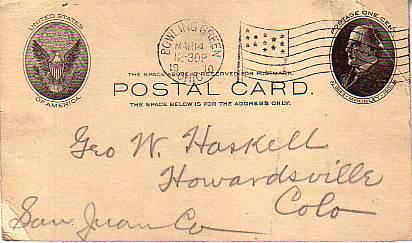 UNITED STATES
OF AMERICA
BOWLING GREEN
MAR 14
12-30P
19 10
OHIO
POSTAGE ONE CENT
THE SPACE ABOVE IS RESERVED FOR POSTMARK.
POSTAL CARD.
THE SPACE BELOW IS FOR THE ADDRESS ONLY.
Geo W. Haskell
Howardsville
Colo
San Juan Co